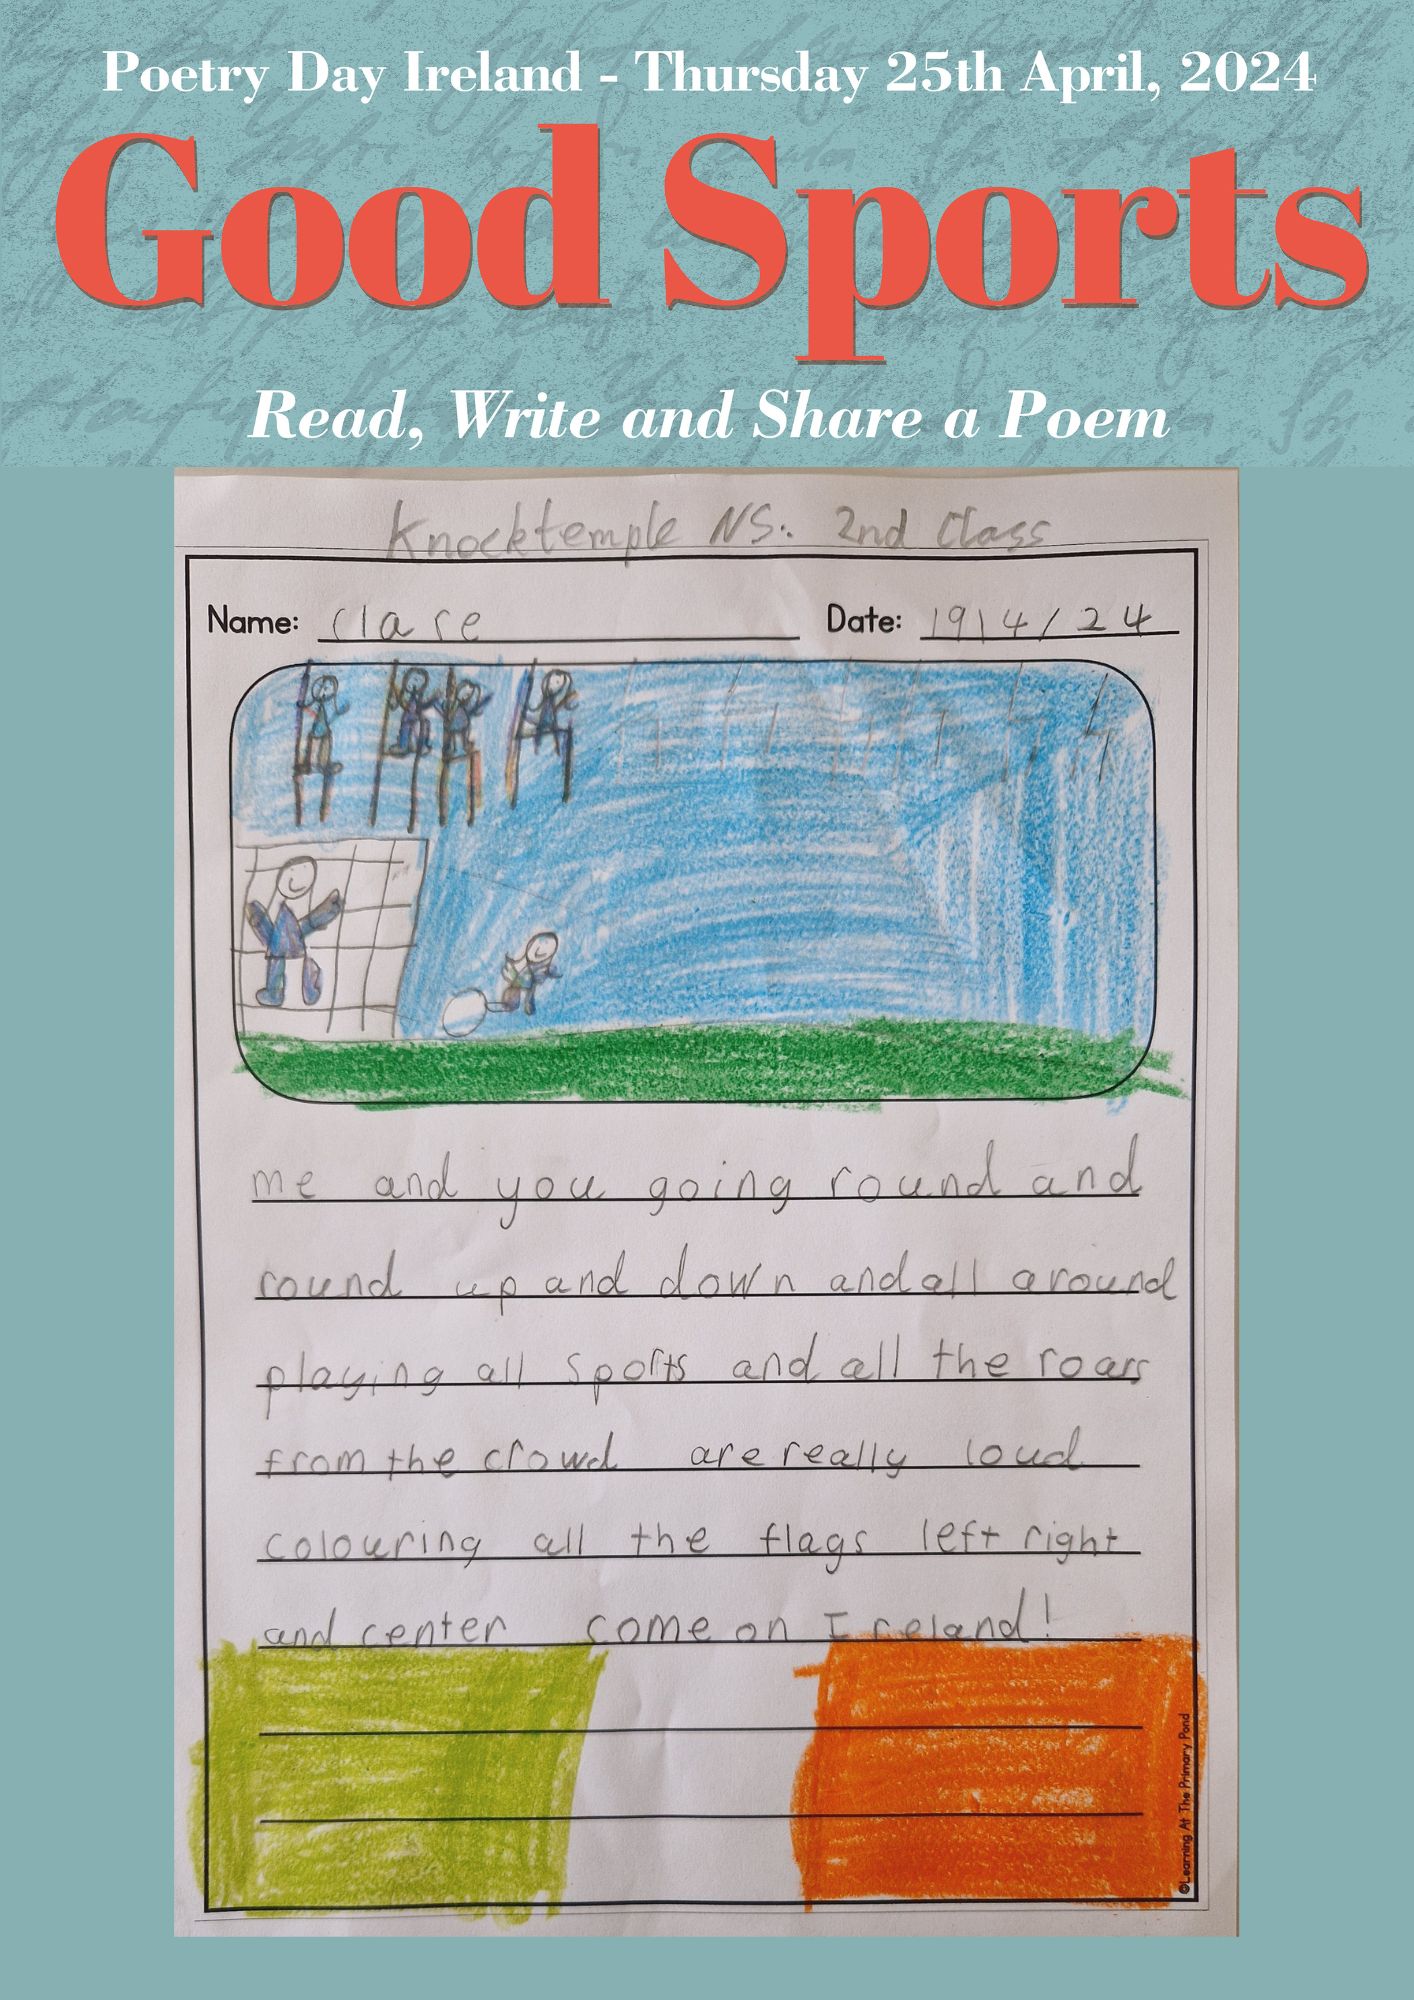 Poetry Day Ireland - Thursday 25th April, 2024
Good Sports
Read, Write and Share a Poem
Knocktemple NS. 2nd Class
Name: Clare Date: 19/4/24
me and you going round and
round up and down and all around
playing all sports and all the roars
from the crowd are really loud
colouring all the flags left right
and center come on Ireland!
©Learning At The Primary Pond